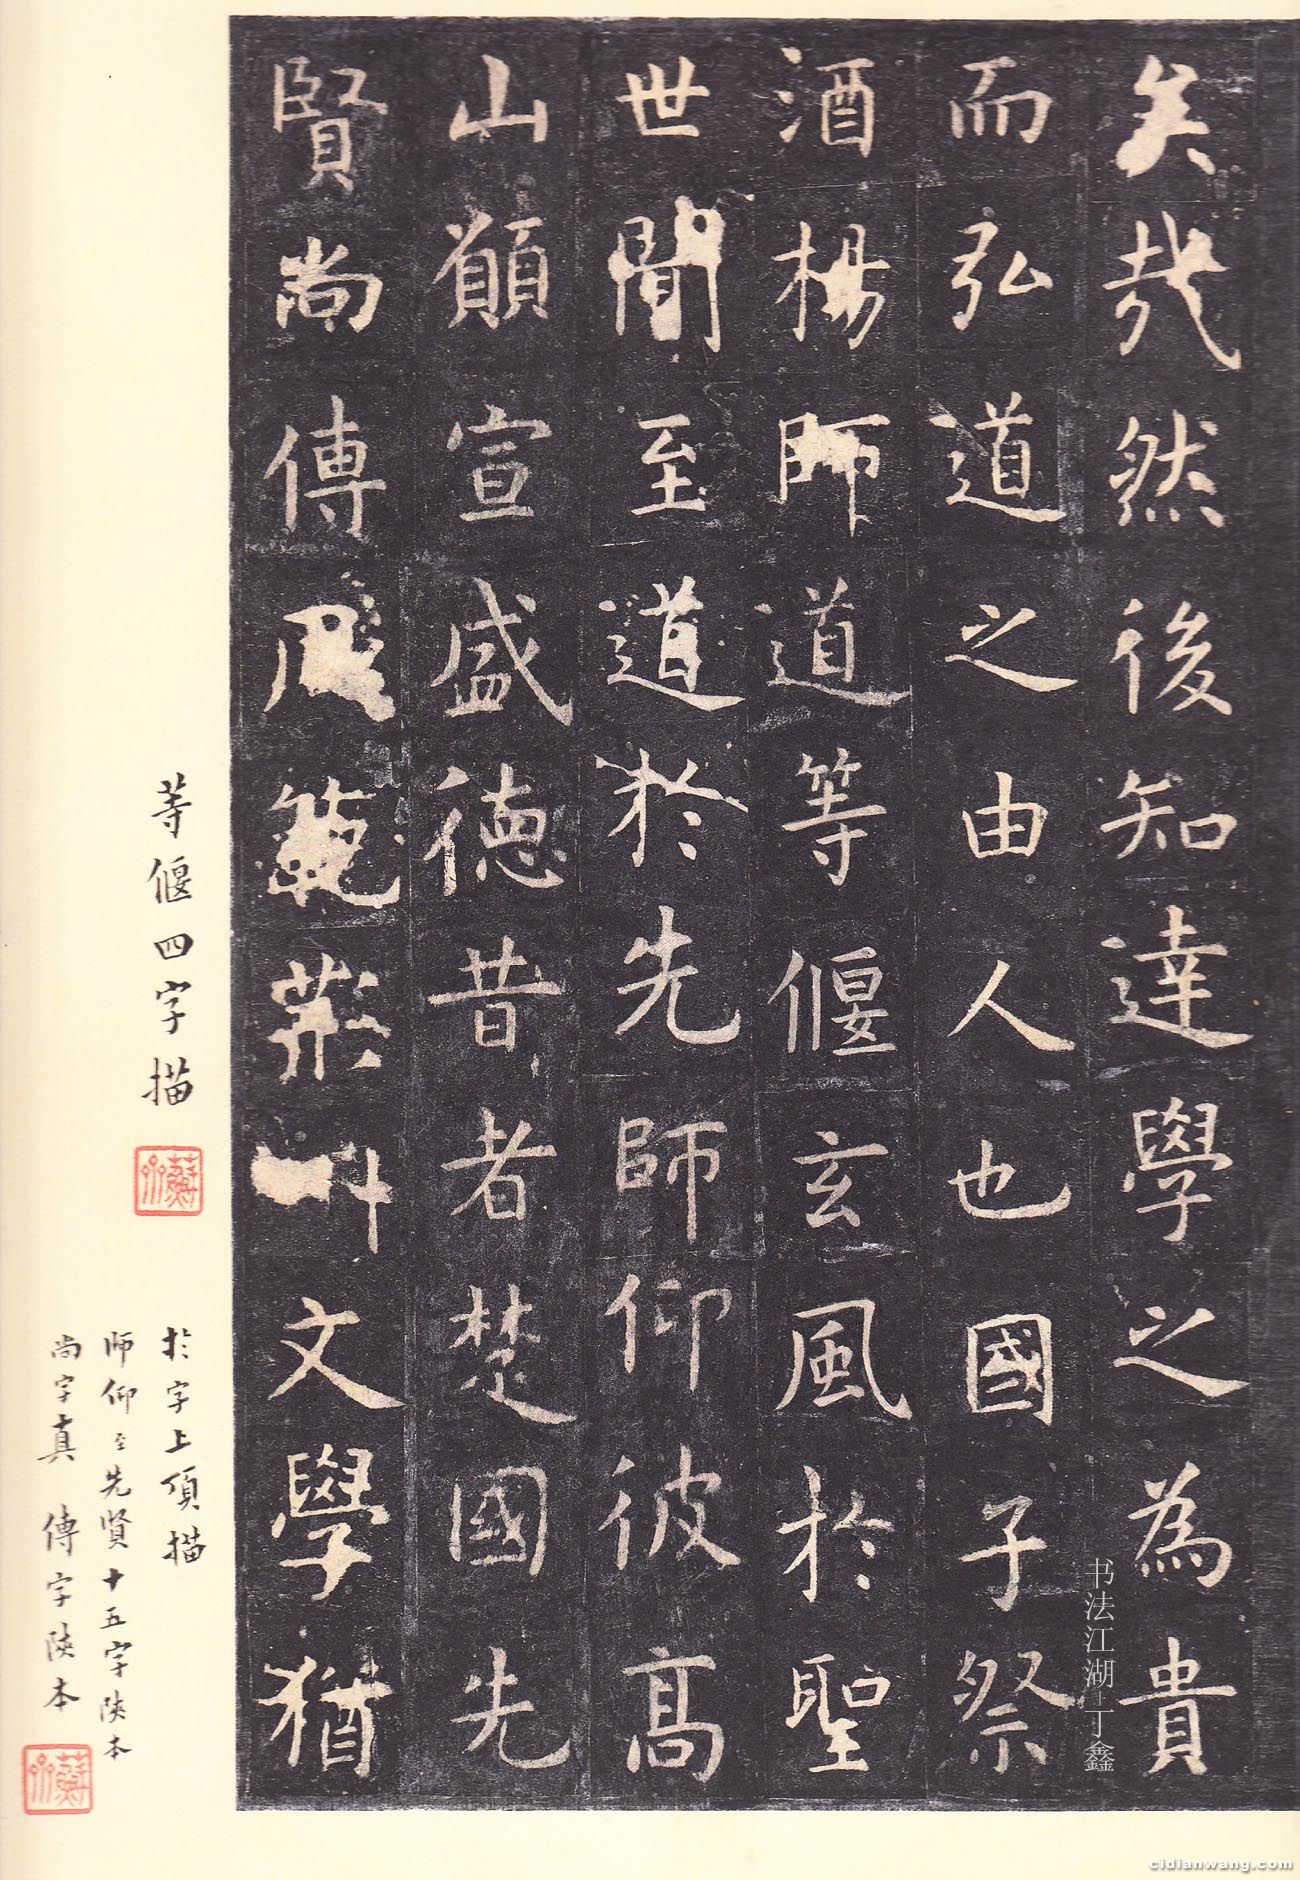 矣哉然後知達學之為貴
而弘道之由人也國子祭
酒楊師道等偃玄風於聖
世閒至道於先師仰彼高
山願宣盛德昔者楚國先
賢尚傳風範荊州文學猶
等偃四字描
於字上項描
師仰至先賢十五字陝本
尚字真 傳字陝本
书法江湖-丁鑫
cidianwang.com